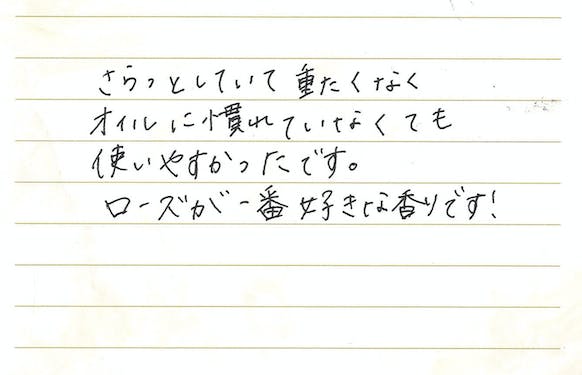 さらっとしていて重たくなく
オイルに慣れていなくても
使いやすかったです。
ローズが一番好きな香りです!